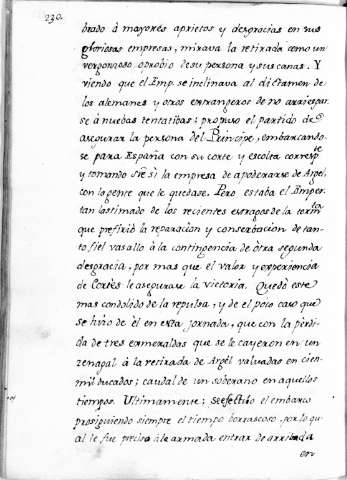 230.
brado à mayores aprietos y desgracias en sus
gloriosas empresas, mirava la retirada como un
vergonzoso oprobio de su persona y sus canas. Y
viendo que el Emp. se inclinava al dictamen de
los alemanes y otros extrangeros de no arriesgar
se à nuebas tentatibas; propuso el partido de
asegurar la persona del Principe, embarcando-
se para España con su corte y escolta correspte
y tomando sre si la empresa de apoderarse de Argel,
con la gente que le quedase. Pero estaba el Emper.
tan lastimado de los recientes extragos de la tormta
que prefirió la reparacion y conserbacion de tan-
to fiel vasallo à la contingencia de otra segunda
desgracia, por mas que el valor y experiencia
de Cortès le asegurava la victoria. Quedò este
mas condolido de la repulsa, y de el poco caso que
se hizo de èl en esta jornada, que con la perdi-
da de tres esmeraldas que se le cayeron en un
zenagal à la retirada de Argèl valuadas en cien-
mil ducados; caudal de un soberano en aquellos
tiempos. Ultimamente; se efectúo el embarco
prosiguiendo siempre el tiempo borrascoso, por lo qu-
al le fue preciso à la armada entrar de arribada
en